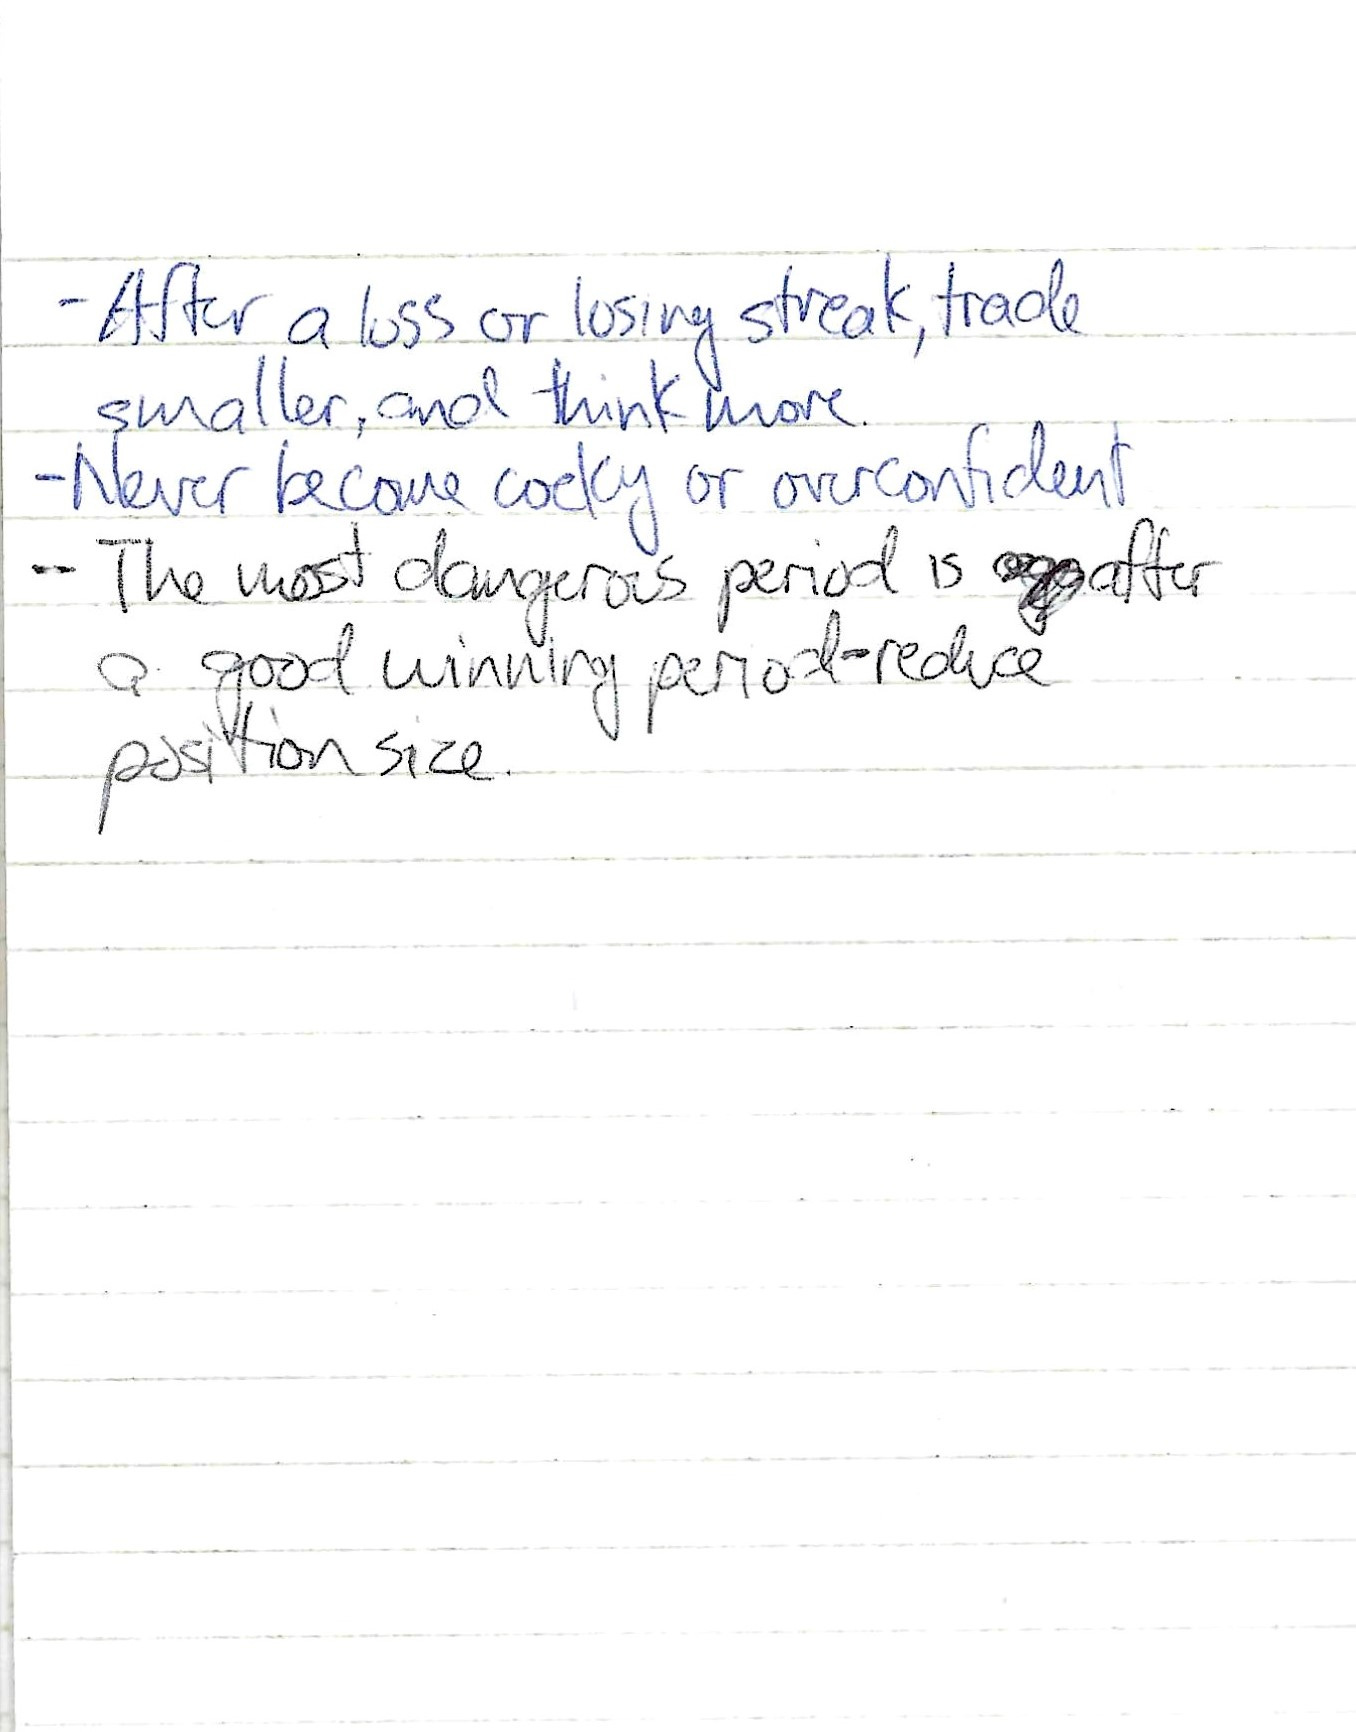 - After a loss or losing streak, trade
smaller, and think more.
- Never become cocky or overconfident
-- The most dangerous period is after
a good winning period - reduce
position size.